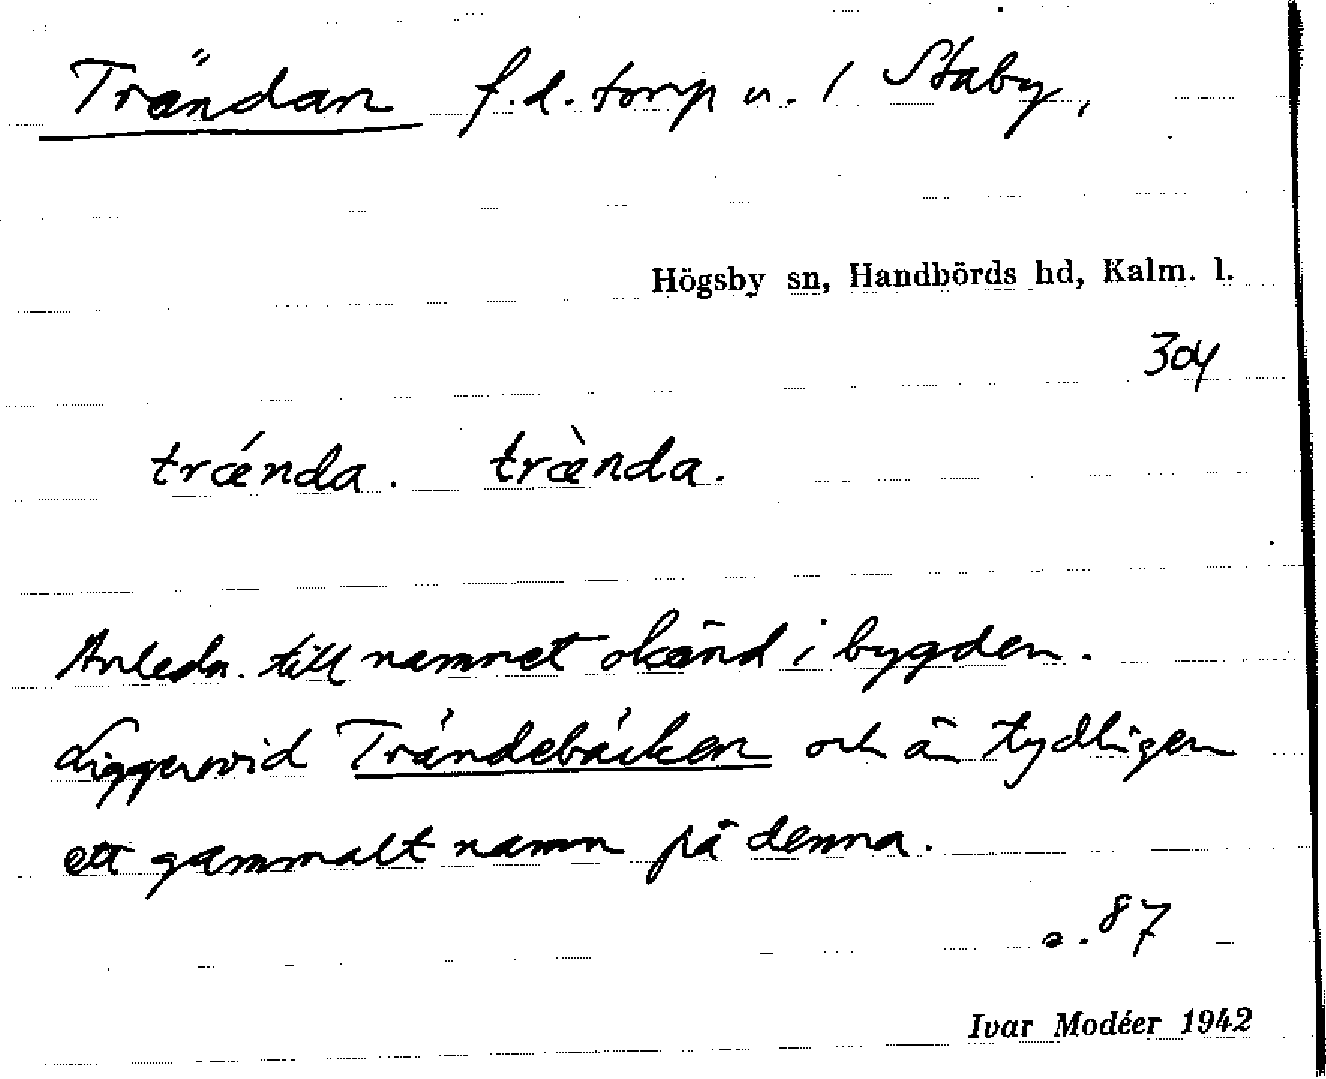 Trändan f.d. torp u. 1 Staby,
Högsby sn, Handbörds hd, Kalm. l.
304
trǽnda. træ̀nda.
Anledn. till namnet okänd i bygden.
Ligger vid Trändebäcken och är tydligen
ett gammalt namn på denna.
s. 87
Ivar Modéer 1942